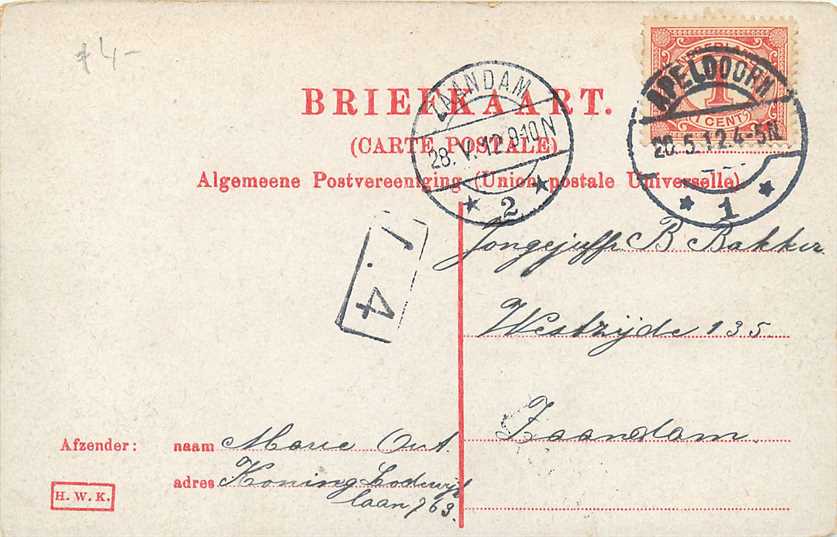 ≠4-
NEDERLAND
1
1 CENT
APELDOORN
28.5.12.4-5N
1
ZAANDAM
28.V.12.9-10N
2
BRIEFKAART.
(CARTE POSTALE)
Algemeene Postvereeniging (Union postale Universelle)
r.4
Jongejuffr. B. Bakker
Westzijde 135.
Zaandam.
Afzender: naam Marie Out.
adres Koning Lodewijk
laan 763.
H. W. K.